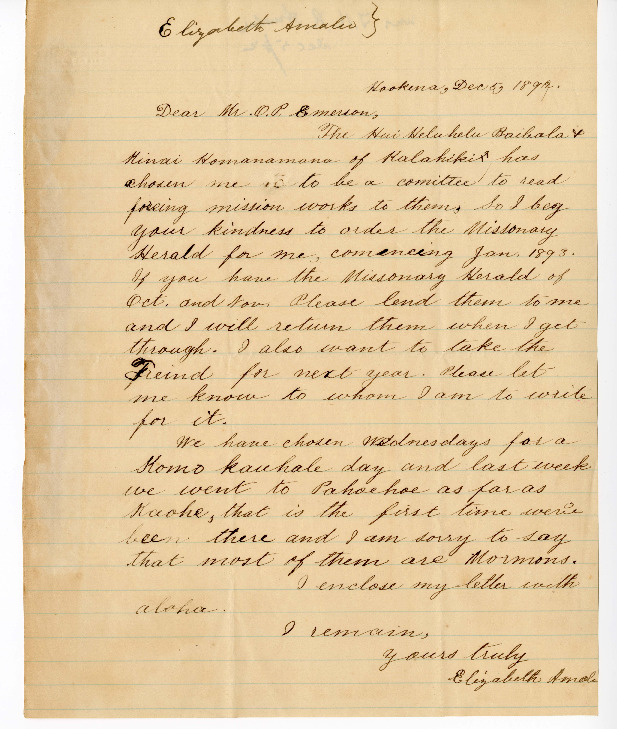 Elizabeth Amalu }
Hookena, Dec 5, 1892.
Dear Mr. O.P. Emerson,
The Hui Heluhelu Baibala &
Himai Homanamana of Kalahiki has
chosen me to be a comittee to read
foreing mission works to them, So I beg
your kindness to order the Missonary
Herald for me, comencing Jan. 1893.
If you have the Missonary Herald of
Oct. and Nov. Please lend them to me
and I will return them when I get
through. I also want to take the
Freind for next year. Please let
me know to whom I am to write
for it.
We have chosen Wednesdays for a
Komo kauhale day and last week
we went to Pahoehoe as far as
Kaohe, that is the first time we've
been there and I am sorry to say
that most of them are Mormons.
I enclose my letter with
aloha.
I remain,
Yours truly
Elizabeth Amalu